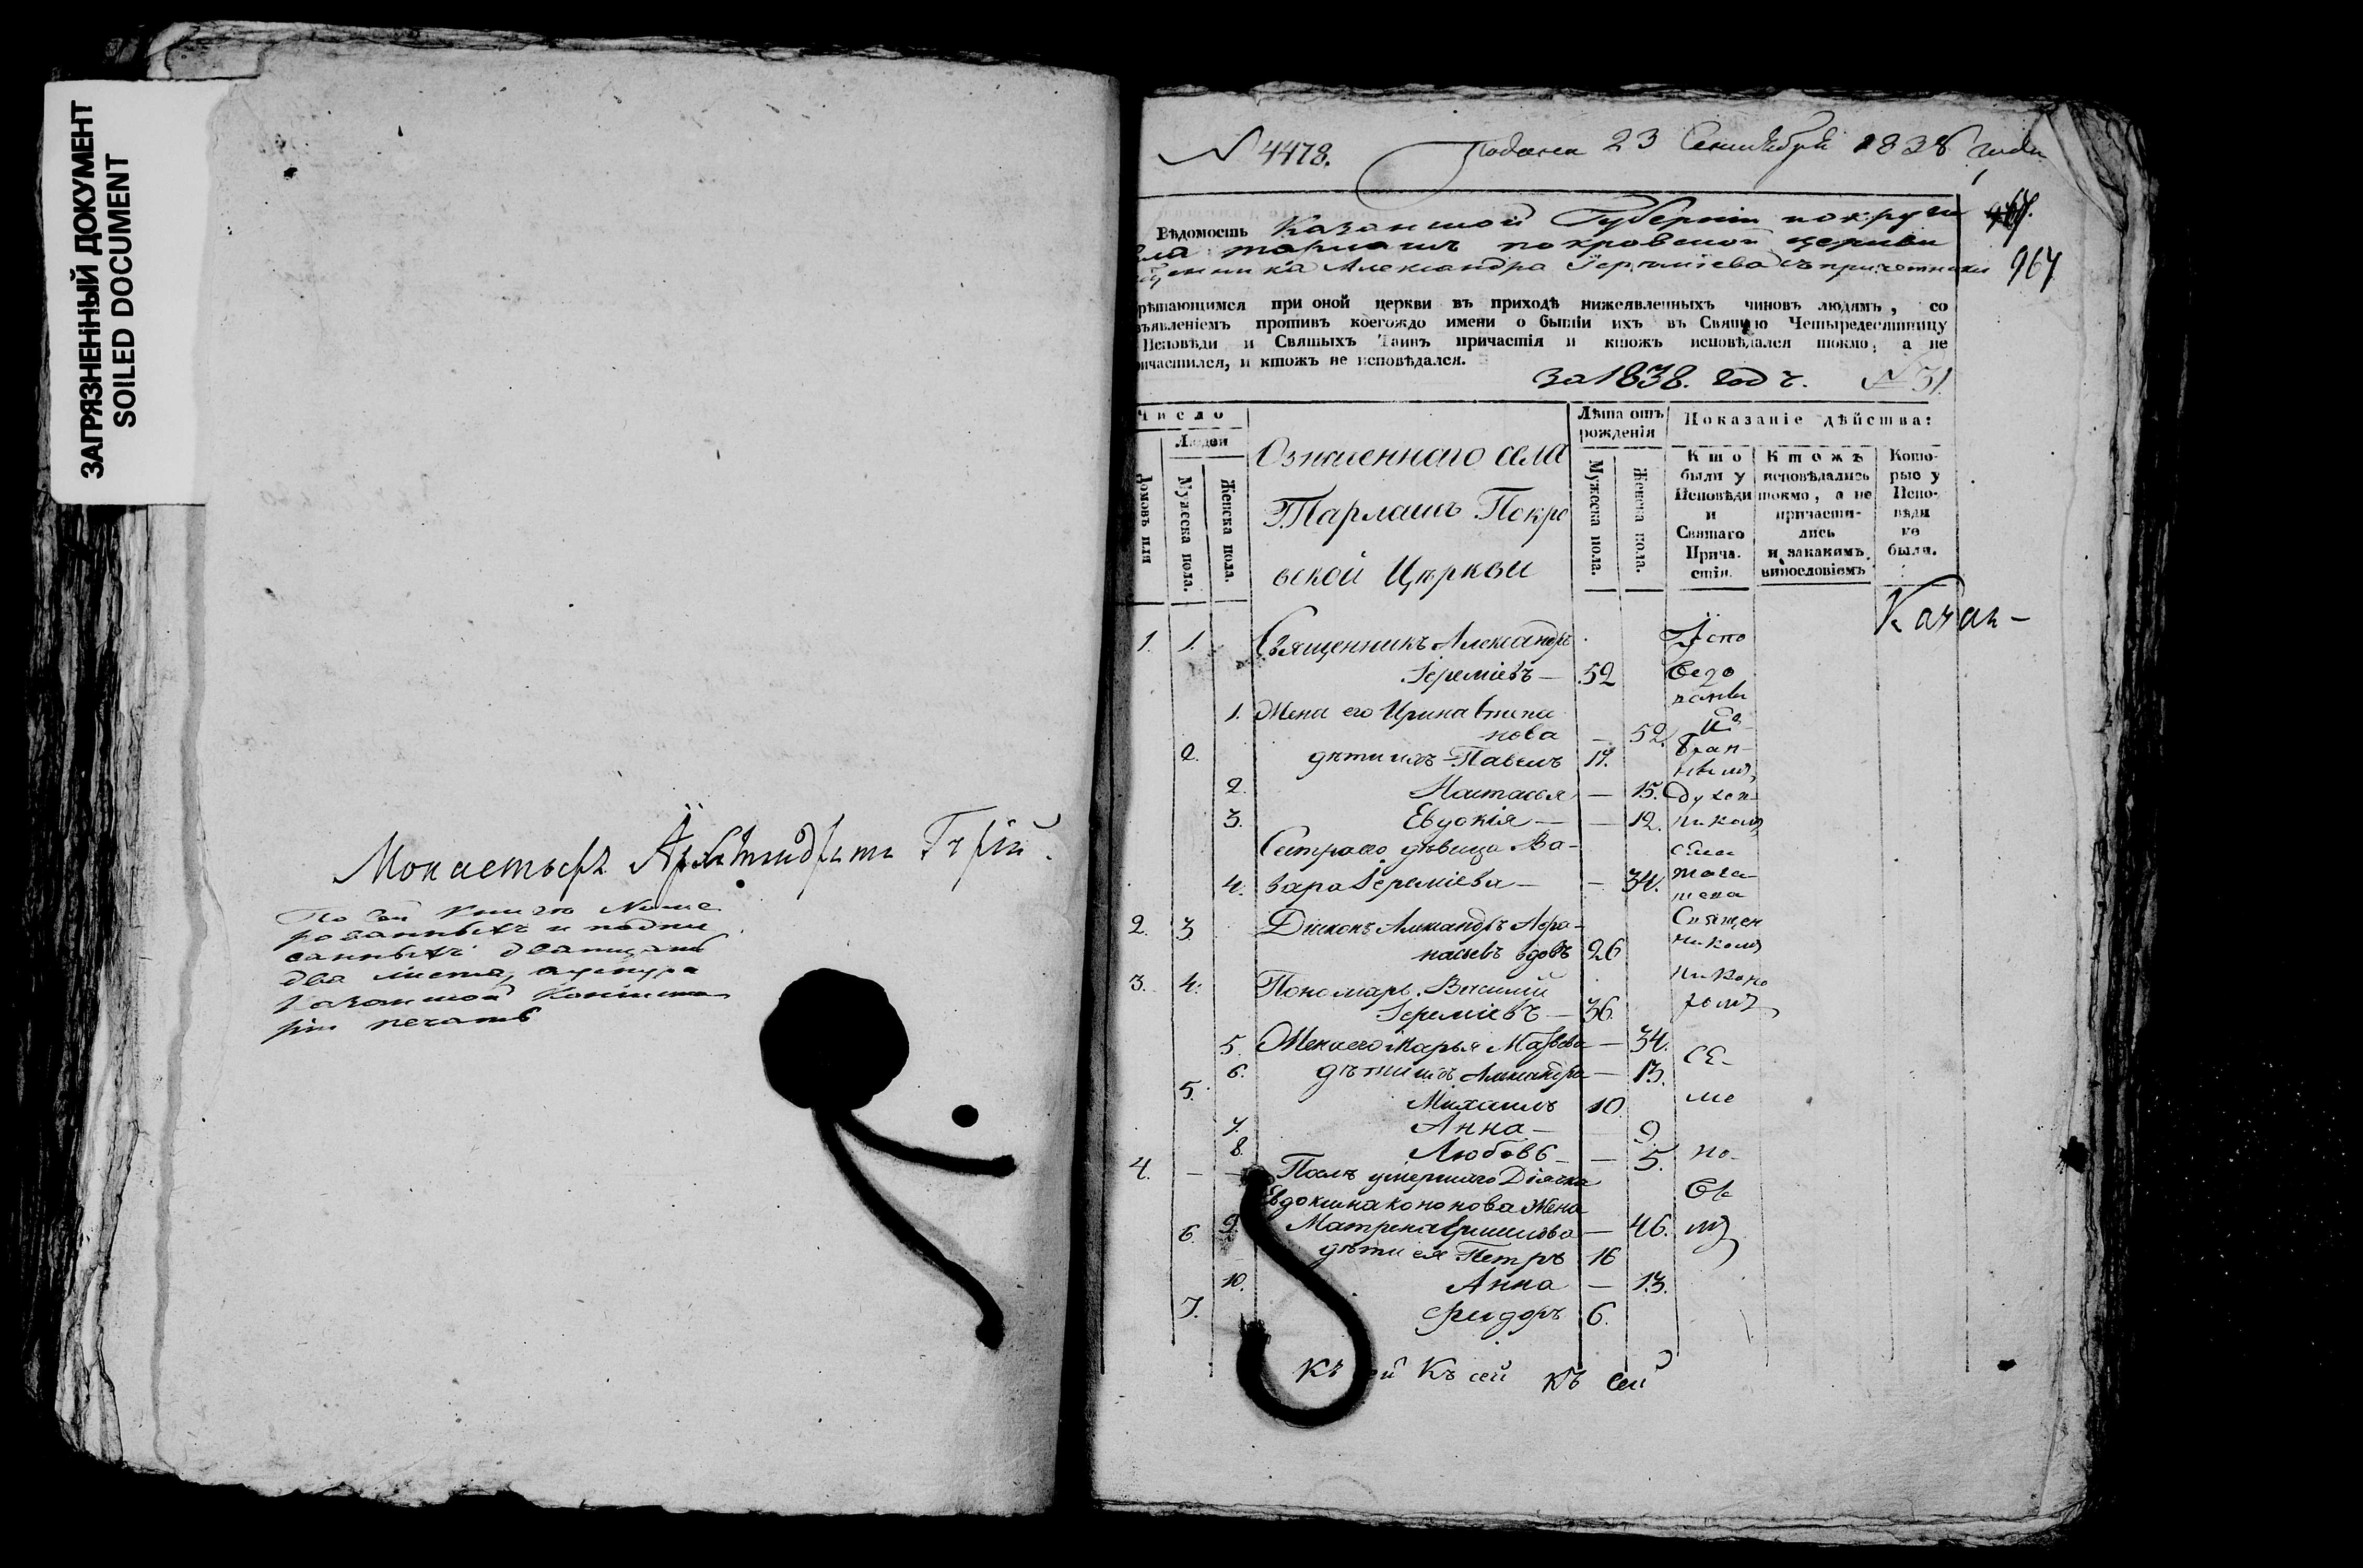 ЗАГРЯЗНЕННЫЙ ДОКУМЕНТ
SOILED DOCUMENT
Монастыря Архимандритъ Гурій.
По сей книгѣ Нуме
рованныхъ и подпи
санныхъ дватцать
два листа, аунтура
Казанской Консисто
ріи печать
N 4478. Подана 23 Сентября 1838 года
Вѣдомость Казанской Губерніи по округи
ла Тарлашъ покровской церкви
щенника Александра Іереміева съ причетники
967
рѣтающимся при оной церкви въ приходѣ нижеявленныхъ чиновъ людямъ, со
зъявленіемъ противъ коегождо имени о бытіи ихъ въ Святую Четыредесятницу
Исповѣди и Святыхъ Таинъ причастія и ктожъ исповѣдался токмо, а не
ичастился, и ктожъ не исповѣдался.
за 1838. годъ. N 31.
Число
Людей
Домовъ или
Мужеска пола.
Женска пола.
Означеннаго села
Тарлашъ Покро
вской Церкви
Лѣта отъ рожденія
Мужеска пола.
Женска пола.
Показаніе дѣйства:
Кто были у Исповѣди и Святаго Прича- стія.
Ктожъ исповѣдались токмо, а не причасти- лись и закакимъ винословіемъ
Кото- рые у Испо- вѣди не были.
Казан-
1. 1. Священникъ Александръ Испо
Іереміевъ — 52
1. Жена его Ирина Степа
нова — 52.
2. дѣти ихъ Павелъ 17.
2. Настасья — 15. Духов
3. Евдокія — — 12. никомъ
Сестра его дѣвица Ва- села
4. вара Іереміева — — 34.
2. 3. Діаконъ Александръ Афо- Священ
насьевъ вдовъ 26 никомъ
3. 4. Пономарь Василий
Іереміевъ — 36.
5. Жена его Марья Матвева — 34.
6. дѣти ихъ Александра — 13.
5. Михаилъ 10.
7. Анна — 9.
8. Любовь — — 5.
4. — — Послѣ умершаго Діячка
Евдокима Кононова Жена
9. Матрена — 46.
6. дѣти ея Петръ 16
10. Анна — 13.
7. Феодоръ 6.
Къ сей Къ сей Къ сей